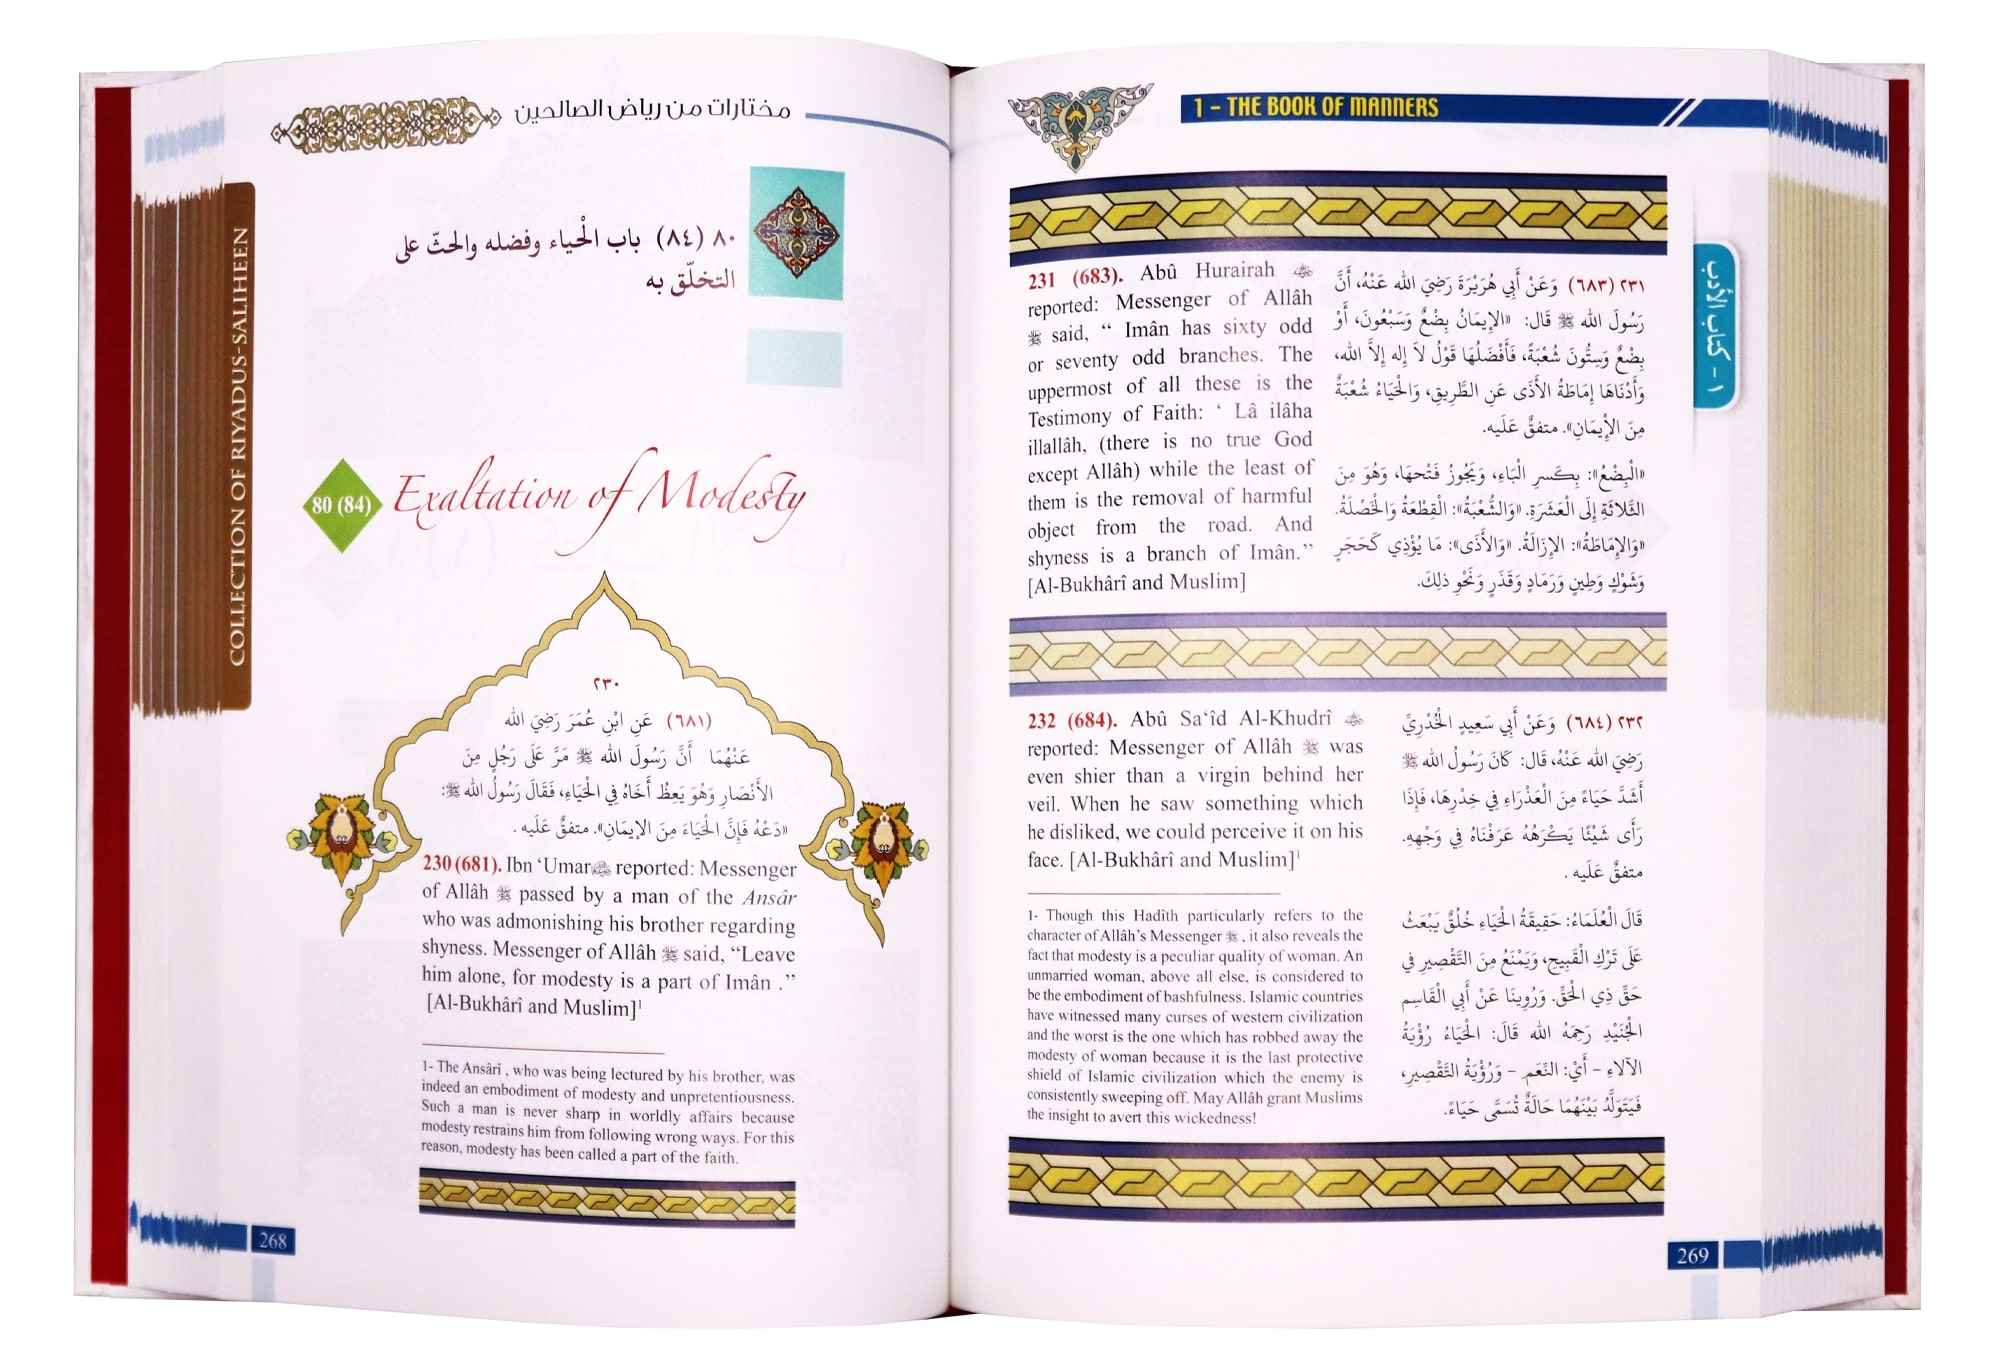 مختارات من رياض الصالحين
COLLECTION OF RIYADUS-SALIHEEN
٨٠ (٨٤) باب الْحياء وفضله والحثّ على
التخلّق به
80 (84) Exaltation of Modesty
٢٣٠
(٦٨١) عَنِ ابْنِ عُمَرَ رَضِيَ الله
عَنْهُمَا أَنَّ رَسُولَ الله ﷺ مَرَّ عَلَى رَجُلٍ مِنَ
الأَنْصَارِ وَهُوَ يَعِظُ أَخَاهُ فِي الْحَيَاءِ، فَقَالَ رَسُولُ الله ﷺ:
«دَعْهُ فَإِنَّ الْحَيَاءَ مِنَ الإِيمَانِ». متفقٌ عَلَيه .
230 (681). Ibn ‘Umar reported: Messenger
of Allâh ﷺ passed by a man of the Ansâr
who was admonishing his brother regarding
shyness. Messenger of Allâh ﷺ said, “Leave
him alone, for modesty is a part of Imân .”
[Al-Bukhârî and Muslim]¹
1- The Ansârî , who was being lectured by his brother, was
indeed an embodiment of modesty and unpretentiousness.
Such a man is never sharp in worldly affairs because
modesty restrains him from following wrong ways. For this
reason, modesty has been called a part of the faith.
268
1 – THE BOOK OF MANNERS
١ – كتاب الأدب
231 (683). Abû Hurairah
reported: Messenger of Allâh
ﷺ said, “ Imân has sixty odd
or seventy odd branches. The
uppermost of all these is the
Testimony of Faith: ‘ Lâ ilâha
illallâh, (there is no true God
except Allâh) while the least of
them is the removal of harmful
object from the road. And
shyness is a branch of Imân.”
[Al-Bukhârî and Muslim]
٢٣١ (٦٨٣) وَعَنْ أَبِي هُرَيْرَةَ رَضِيَ الله عَنْهُ، أَنَّ
رَسُولَ الله ﷺ قَال: «الإِيمَانُ بِضْعٌ وَسَبْعُونَ، أَوْ
بِضْعٌ وَسِتُّونَ شُعْبَةً، فَأَفْضَلُهَا قَوْلُ لاَ إِله إِلاَّ الله،
وَأَدْنَاهَا إِمَاطَةُ الأَذَى عَنِ الطَّرِيقِ، وَالْحَيَاءُ شُعْبَةٌ
مِنَ الْإِيمَانِ». متفقٌ عَلَيه.
«الْبِضْعُ»: بِكَسرِ الْبَاءِ، وَيَجُوزُ فَتْحهَا، وَهُوَ مِنَ
الثَّلاثَةِ إِلَى الْعَشَرَةِ. «وَالشُّعْبَةُ»: الْقِطْعَةُ وَالْخَصْلَةُ.
«وَالإِمَاطَةُ»: الإِزَالَةُ. «وَالأَذَى»: مَا يُؤْذِي كَحَجَرٍ
وَشَوْكٍ وَطِينٍ وَرَمَادٍ وَقَذَرٍ وَنَحْوِ ذلِكَ.
232 (684). Abû Sa‘îd Al-Khudrî
reported: Messenger of Allâh ﷺ was
even shier than a virgin behind her
veil. When he saw something which
he disliked, we could perceive it on his
face. [Al-Bukhârî and Muslim]¹
1- Though this Hadîth particularly refers to the
character of Allâh’s Messenger ﷺ , it also reveals the
fact that modesty is a peculiar quality of woman. An
unmarried woman, above all else, is considered to
be the embodiment of bashfulness. Islamic countries
have witnessed many curses of western civilization
and the worst is the one which has robbed away the
modesty of woman because it is the last protective
shield of Islamic civilization which the enemy is
consistently sweeping off. May Allâh grant Muslims
the insight to avert this wickedness!
٢٣٢ (٦٨٤) وَعَنْ أَبِي سَعِيدٍ الْخُدْرِيِّ
رَضِيَ الله عَنْهُ، قَال: كَانَ رَسُولُ الله ﷺ
أَشَدَّ حَيَاءً مِنَ الْعَذْرَاءِ فِي خِدْرِهَا، فَإِذَا
رَأَى شَيْئًا يَكْرَهُهُ عَرَفْنَاهُ فِي وَجْهِهِ.
متفقٌ عَلَيه .
قَالَ الْعُلَمَاءُ: حَقِيقَةُ الْحَيَاءِ خُلُقٌ يَبْعَثُ
عَلَى تَرْكِ الْقَبِيحِ، وَيَمْنَعُ مِنَ التَّقْصِيرِ فِي
حَقِّ ذِي الْحَقِّ. وَرُوِينَا عَنْ أَبِي الْقَاسِمِ
الْجُنَيْدِ رَحِمَهُ الله قَالَ: الْحَيَاءُ رُؤْيَةُ
الآلاءِ – أَيْ: النِّعَمِ – وَرُؤْيَةُ التَّقْصِيرِ،
فَيَتَوَلَّدُ بَيْنَهُمَا حَالَةٌ تُسَمَّى حَيَاءً.
269